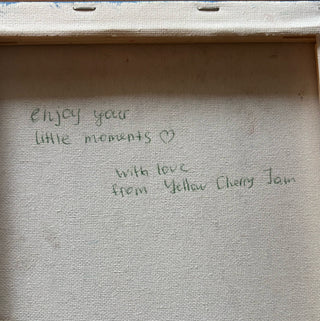 enjoy your
little moments ♡
with love
from Yellow Cherry Jam